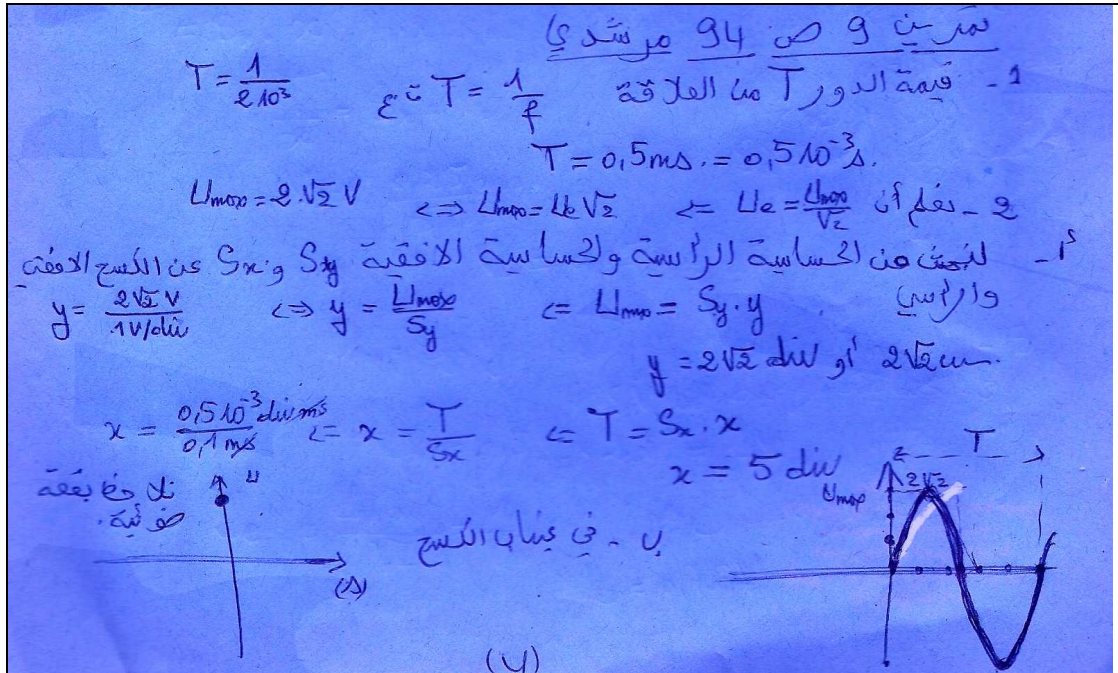 تمرين 9 ص 94 مرشدي
1 - قيمة الدور T من العلاقة T = 1/f تع T = 1/2 10³
T = 0,5ms. = 0,5 10⁻³s.
2 - نعلم أن Ue = Umax/√2 => Umax = Ue√2 <=> Umax = 2.√2 V
أ - لنبحث عن الحساسية الرأسية والحساسية الافقية Sy و Sx عن الكسح الافقي
والرأسي Umax = Sy.y => y = Umax/Sy <=> y = 2√2 V/1V/div
y = 2√2 div أو 2√2 cm.
T = Sx.x => x = T/Sx => x = 0,5 10⁻³ div ms/0,1 ms
x = 5 div
T
Umax 2√2
ب - في غياب الكسح
نلاحظ بقعة
ضوئية.
u
(s)
(4)